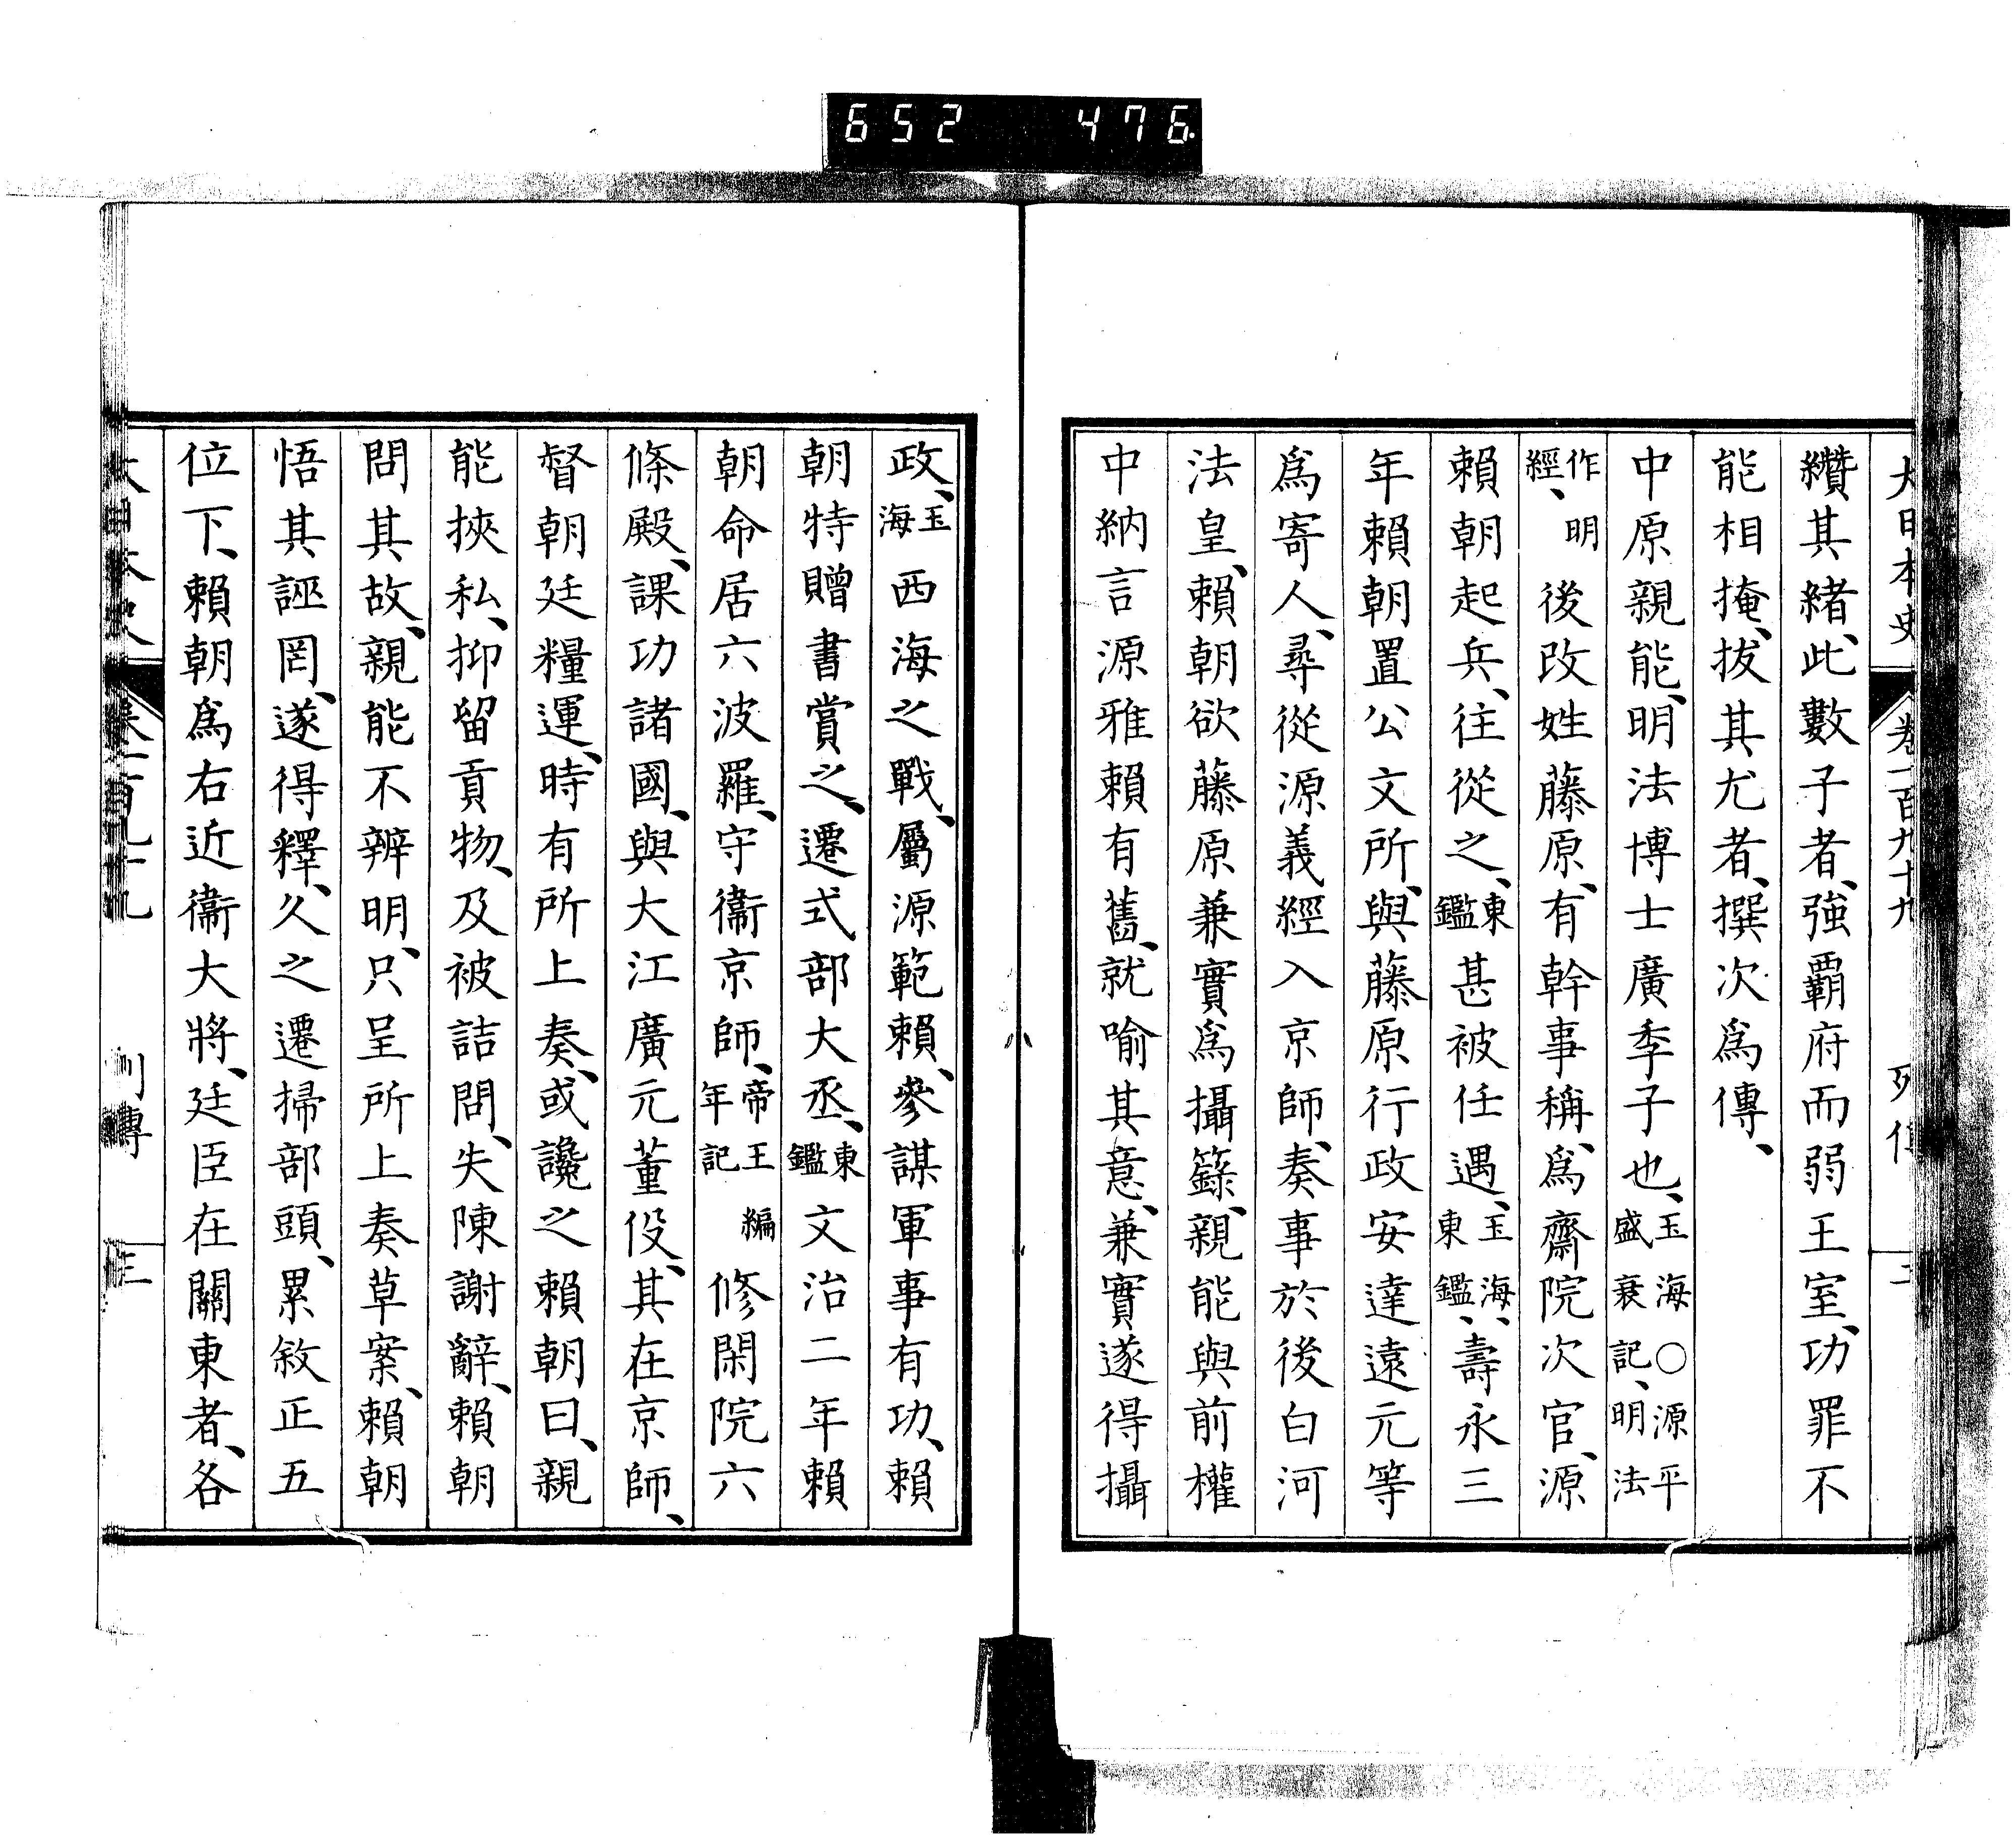 652 476
大日本史 卷一百九十九 列傳 二
纘其緒、此數子者、強覇府而弱王室、功罪不
能相掩、拔其尤者、撰次爲傳、
中原親能、明法博士廣季子也、玉海○源平盛衰記、明法
作明經、後改姓藤原、有幹事稱、爲齋院次官、源
賴朝起兵、往從之、東鑑甚被任遇、玉海、東鑑、壽永三
年賴朝置公文所、與藤原行政安達遠元等
爲寄人、尋從源義經入京師、奏事於後白河
法皇、賴朝欲藤原兼實爲攝籙、親能與前權
中納言源雅賴有舊、就喻其意、兼實遂得攝
政、玉海西海之戰、屬源範賴、參謀軍事有功、賴
朝特贈書賞之、遷式部大丞、東鑑文治二年賴
朝命居六波羅、守衞京師、帝王編年記修閑院六
條殿、課功諸國、與大江廣元董役、其在京師、
督朝廷糧運、時有所上奏、或讒之賴朝曰、親
能挾私、抑留貢物、及被詰問、失陳謝辭、賴朝
問其故、親能不辨明、只呈所上奏草案、賴朝
悟其誣罔、遂得釋、久之遷掃部頭、累敘正五
位下、賴朝爲右近衞大將、廷臣在關東者、各
大日本史 卷一百九十九 列傳 三